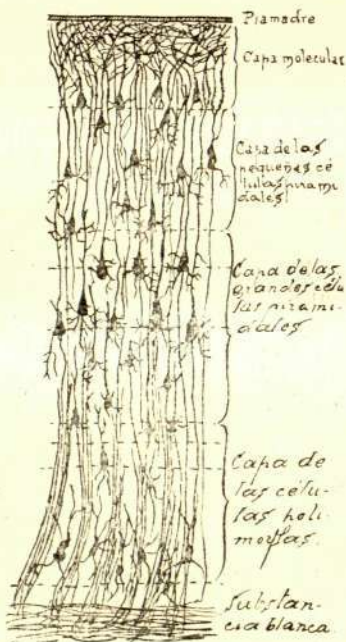 Piamadre
Capa molecular
Capa de las
pequeñas cé
lulas pirami
dales
Capa de las
grandes célu
las pirami-
dales
Capa de
las célu-
las poli-
morfas.
Substan-
cia blanca